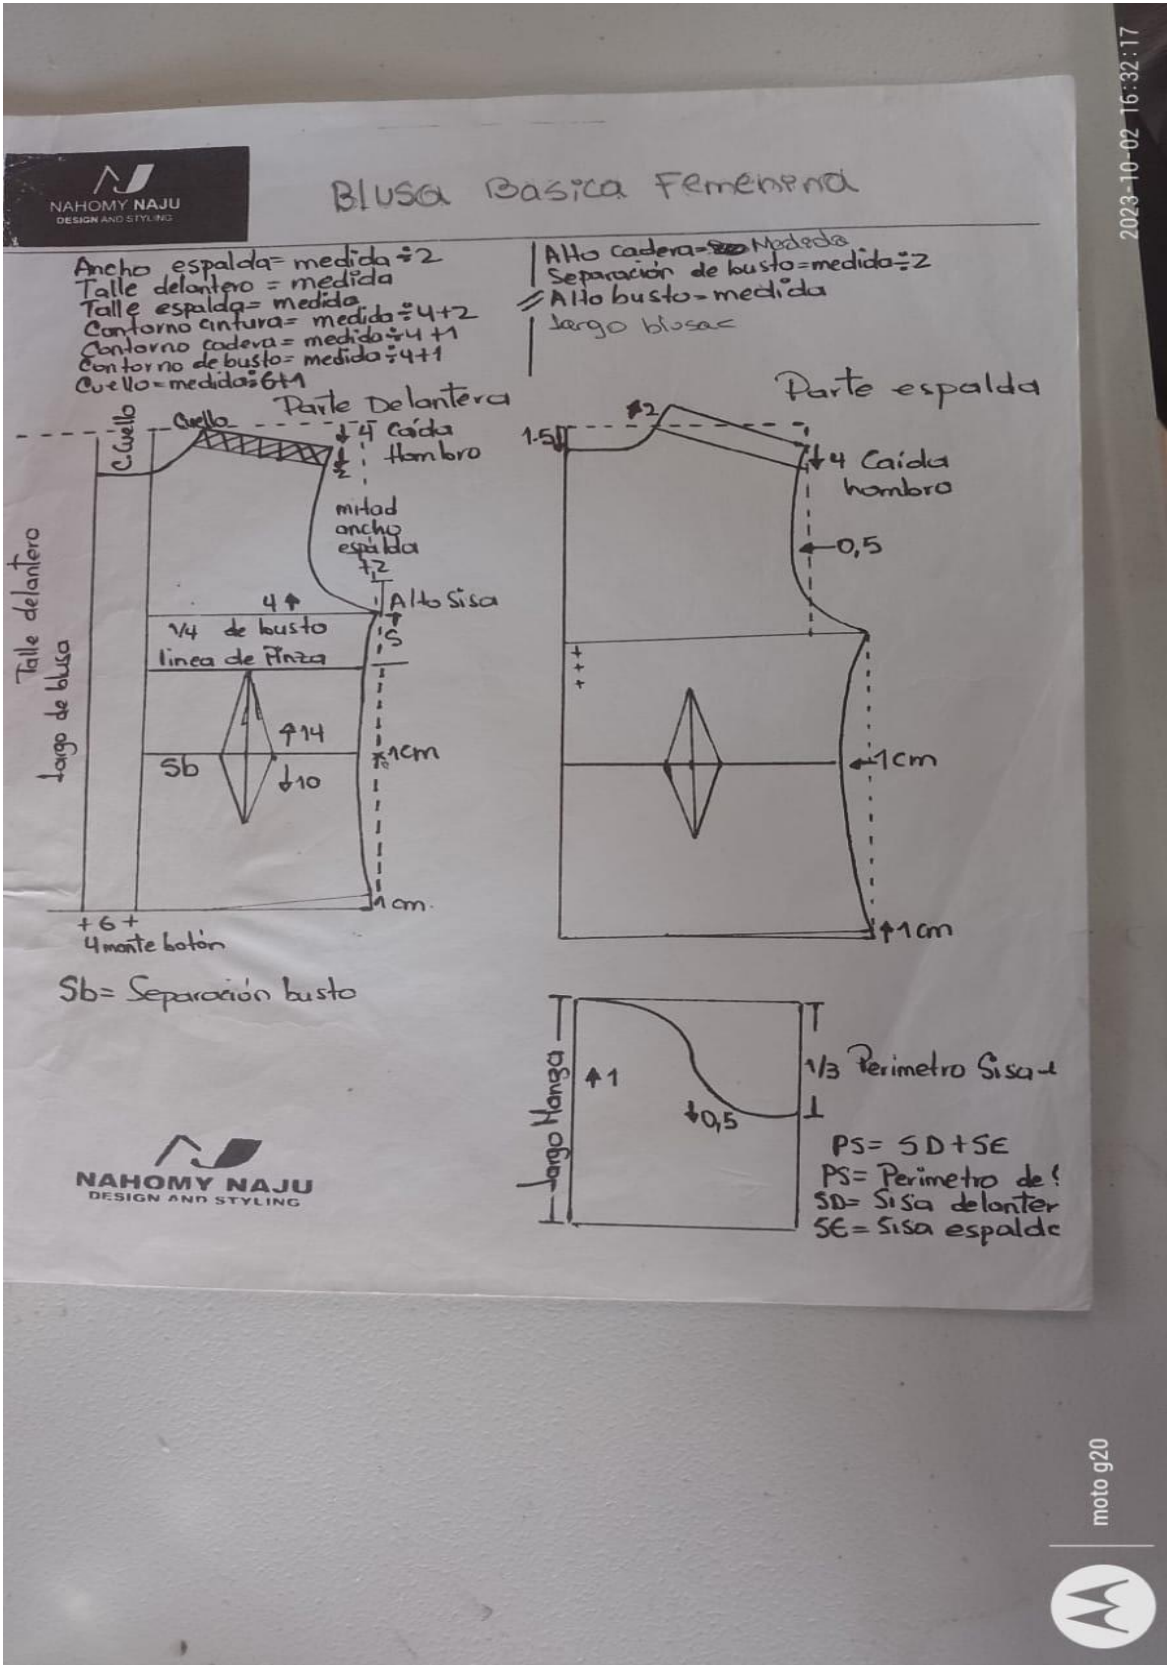 NAHOMY NAJU
DESIGN AND STYLING
Blusa Basica Femenina
Ancho espalda= medida÷2
Talle delantero = medida
Talle espalda= medida
Contorno cintura= medida÷4+2
Contorno cadera= medida÷4+1
Contorno de busto= medida÷4+1
Cuello=medida÷6+1
Alto cadera= Medida
Separación de busto=medida÷2
Alto busto=medida
largo blusa=
Parte Delantera
C.Cuello
Cuello
↓4 Caída
Hombro
mitad
ancho
espalda
+,2
Alto Sisa
4↑
1/4 de busto
5
linea de Pinza
↑14
Sb
1cm
↓10
1cm.
Talle delantero
largo de blusa
+6+
4 monte botón
Sb= Separación busto
Parte espalda
2
1.5
↓4 Caída
hombro
←0,5
+
+
+
←1cm
↑1cm
Largo Manga
↑1
↓0,5
1/3 Perimetro Sisa-1
PS= SD+SE
PS= Perimetro de
SD= Sisa delanter
SE= Sisa espalda
NAHOMY NAJU
DESIGN AND STYLING
2023-10-02 16:32:17
moto g20